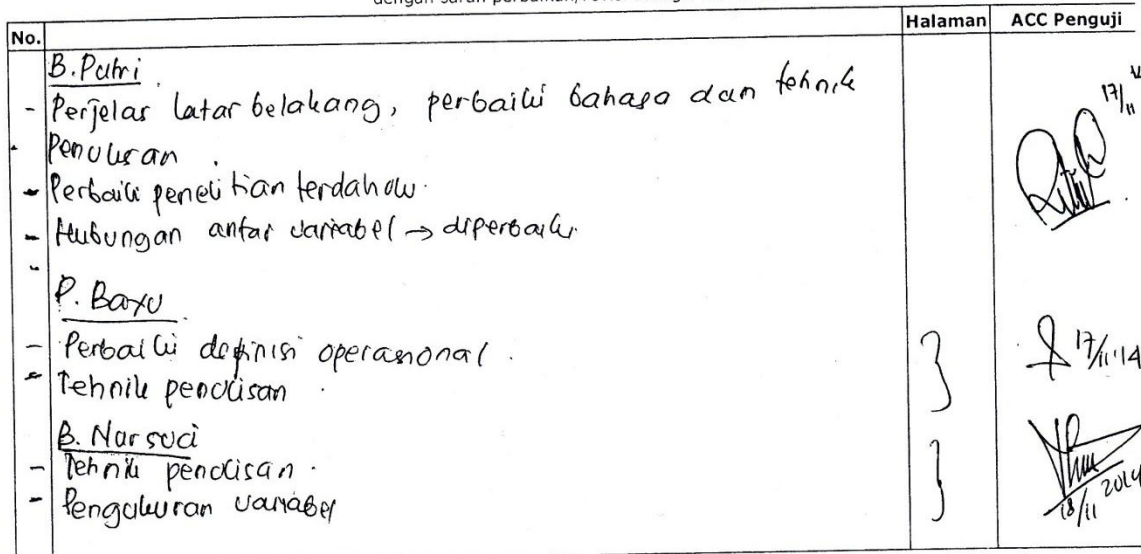 dengan saran perbaikan/
No. Halaman ACC Penguji
B. Putri
- Perjelas latar belakang, perbaiki bahasa dan tehnik 17/11
Penulisan .
- Perbaiki penelitian terdahulu.
- Hubungan antar variabel → diperbaiki.
P. Bayu
- Perbaiki definisi operasional . 17/11'14
- Tehnik penulisan .
B. Nursuci
- Tehnik penulisan .
- Pengukuran variabel 18/11 2014